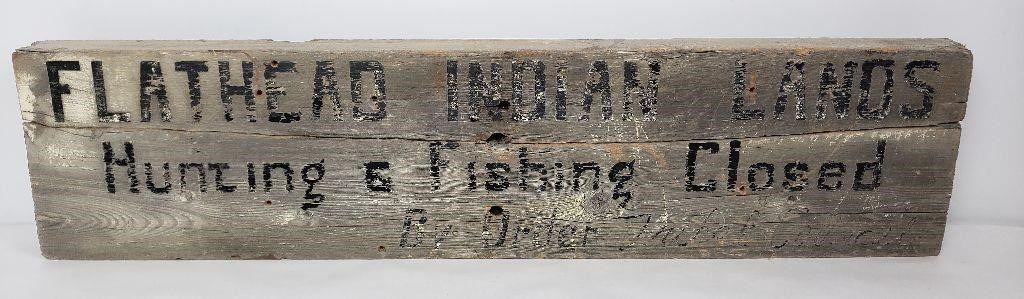 FLATHEAD INDIAN LANDS
Hunting & Fishing Closed
By Order Tribal Council